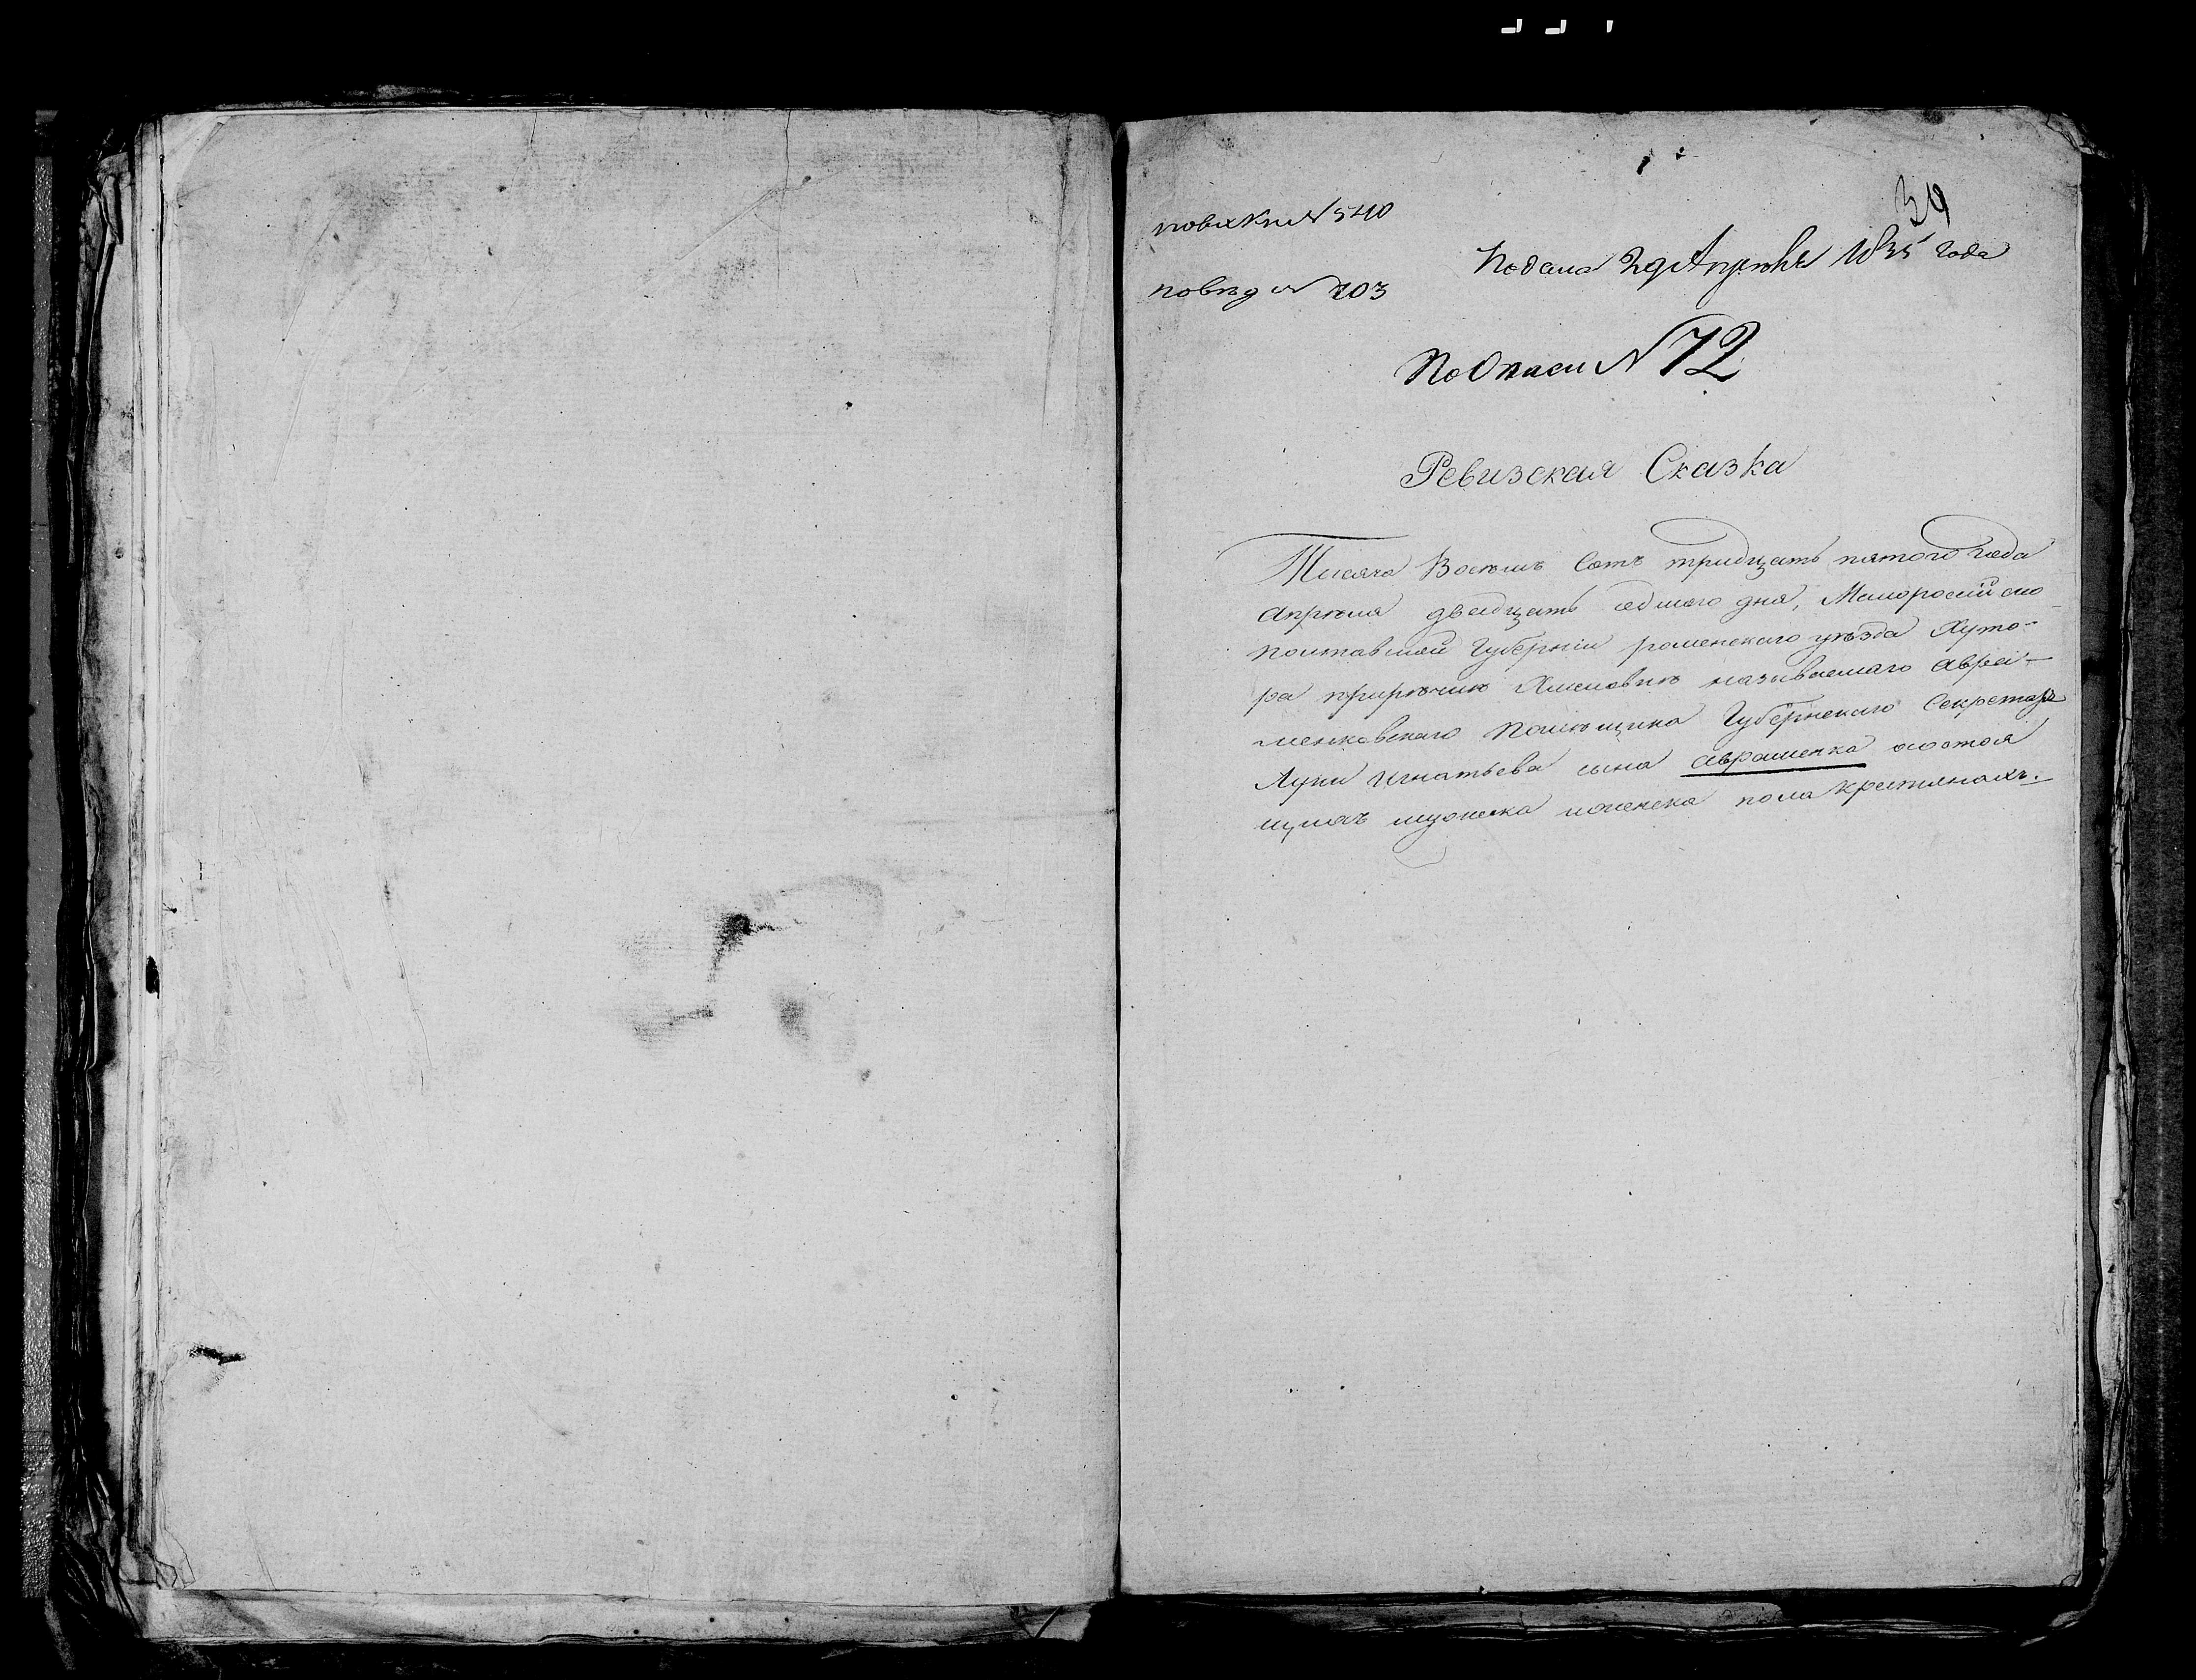 39
повх Кни № 540
Подана 29 Апреля 1835 года
повед № 203
По Описи № 72
Ревизская Сказка
Тисяча Восемь Сотъ тридцать пятого года
апреля двадцать седмого дня, Малоросийско
полтавской Губернiи роменского уезда Хуто-
ра приречке называемаго Авра-
менковского помещика Губернского Секретаря
Луки Игнатьева сына Авраменка состоя
щихъ мужеска иженска пола крестьянахъ.